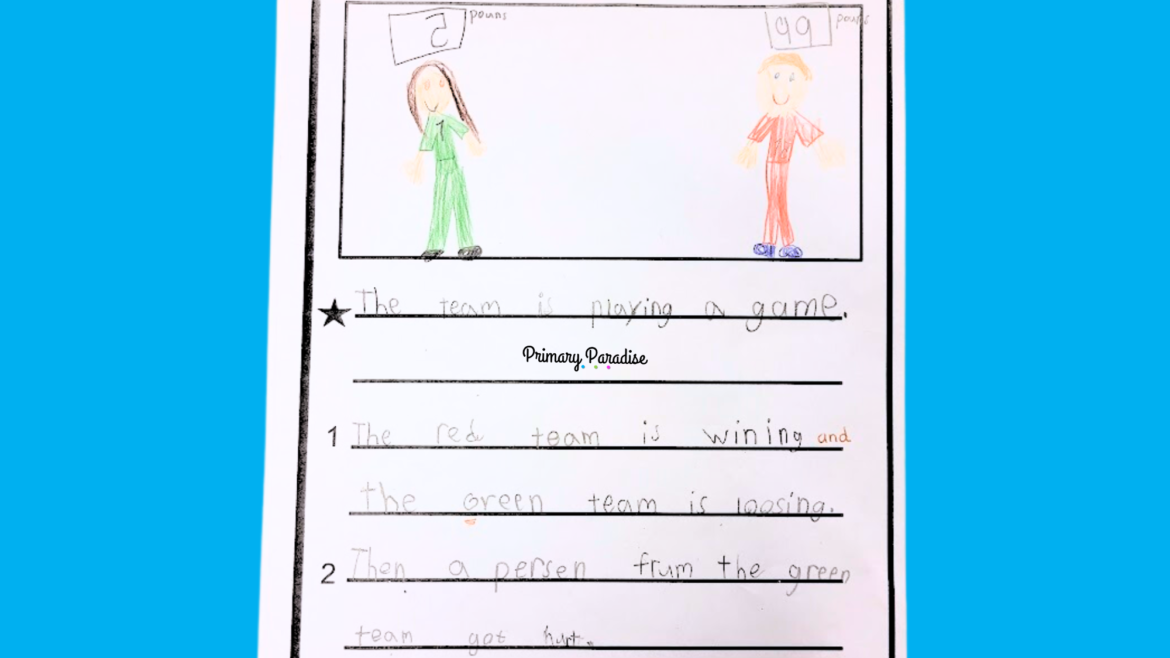 5 pouns
99 pouns
★ The team is playing a game.
Primary Paradise
1 The red team is wining and
the green team is loosing.
2 Then a persen frum the green
team got hurt.